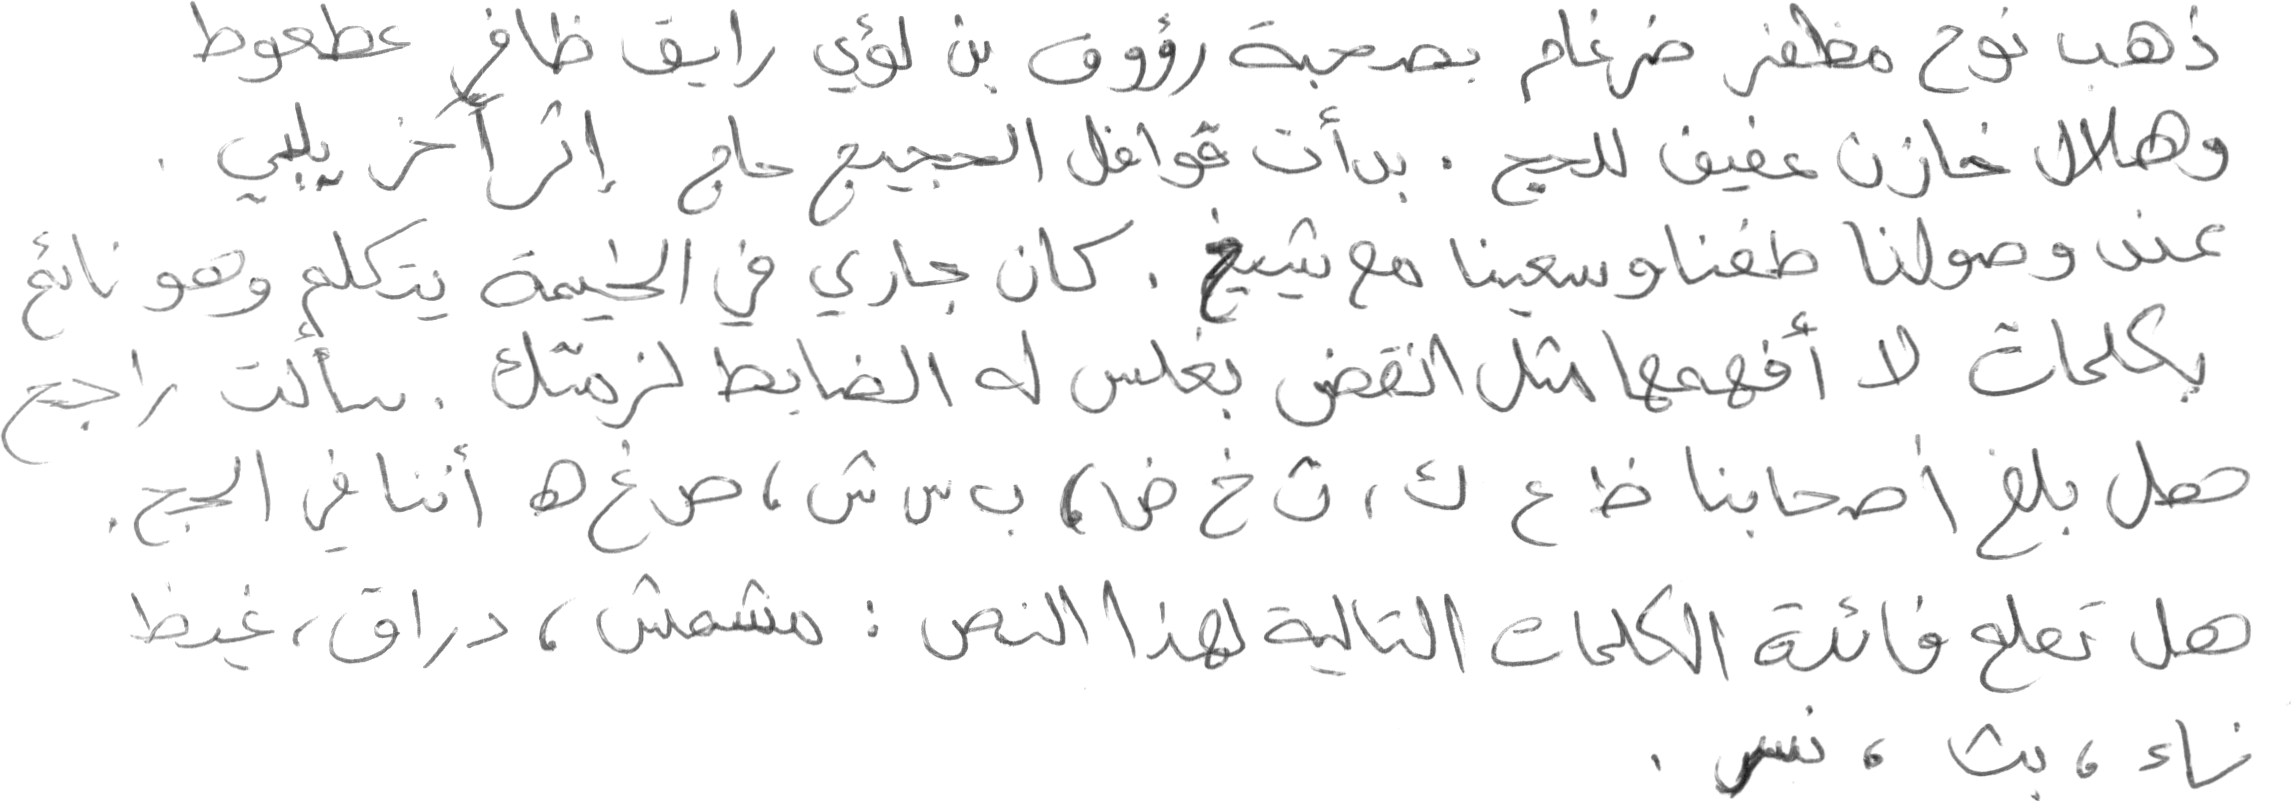 ذهب نوح مظفر ضرغام بصحبة رؤوف بن لؤي رايق ظافر عطعوط
وهلال خازن عفيف للحج . بدأت قوافل الحجيج حاج إثر آخر يلبي .
عند وصولنا طفنا وسعينا مع شيخ . كان جاري في الخيمة يتكلم وهو نائم
بكلمات لا أفهمها مثل انقض بغلس له الضابط لزمتك . سألت راجح
هل بلغ أصحابنا ظ ع ك ، ث خ ض ، ب س ش ، ص غ ه أننا في الحج .
هل تعلم فائدة الكلمات التالية لهذا النص : مشمش ، دراق ، غيظ
ناء ، بث ، نسر .